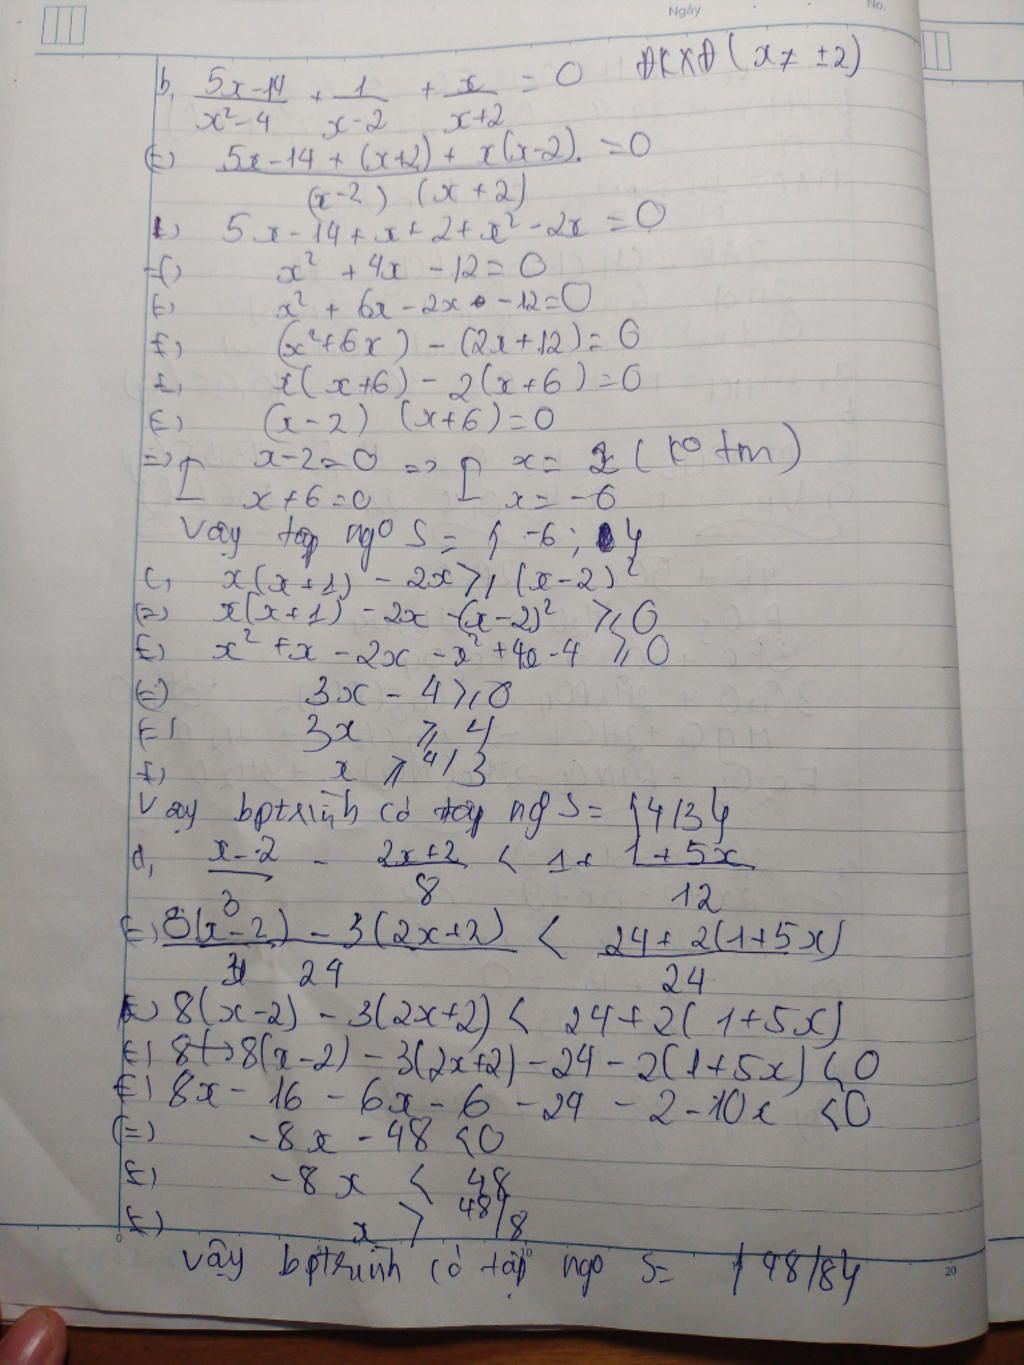 Ngày No.
b, (5x-14)/(x²-4) + 1/(x-2) + x/(x+2) = 0 ĐKXĐ (x ≠ ±2)
(=) (5x-14 + (x+2) + x(x-2))/((x-2) (x+2)) = 0
(=) 5x-14+x+2+x²-2x=0
(=) x² + 4x - 12 = 0
(=) x² + 6x - 2x - 12 = 0
(=) (x²+6x) - (2x+12) = 0
(=) x(x+6) - 2(x+6) = 0
(=) (x-2) (x+6) = 0
=> [ x-2=0 => [ x = 2 (ko tm)
x+6=0 x = -6
Vậy tập ngo S = { -6; }
c, x(x+1) - 2x ⩾ (x-2)²
(=) x(x+1) - 2x -(x-2)² ⩾ 0
(=) x² + x - 2x - x² + 4x - 4 ⩾ 0
(=) 3x - 4 ⩾ 0
(=) 3x ⩾ 4
(=) x ⩾ 4/3
Vậy bptrình có tập ng S = {4/3}
d, (x-2)/3 - (2x+2)/8 < 1 + (1+5x)/12
(=) (8(x-2) - 3(2x+2))/24 < (24+2(1+5x))/24
(=) 8(x-2) - 3(2x+2) < 24+2(1+5x)
(=) 8(x-2) - 3(2x+2) - 24 - 2(1+5x) < 0
(=) 8x - 16 - 6x - 6 - 24 - 2 - 10x < 0
(=) -8x - 48 < 0
(=) -8x < 48
(=) x > 48/8
0 10 20
Vậy bptrình có tập ngo S = {48/8}